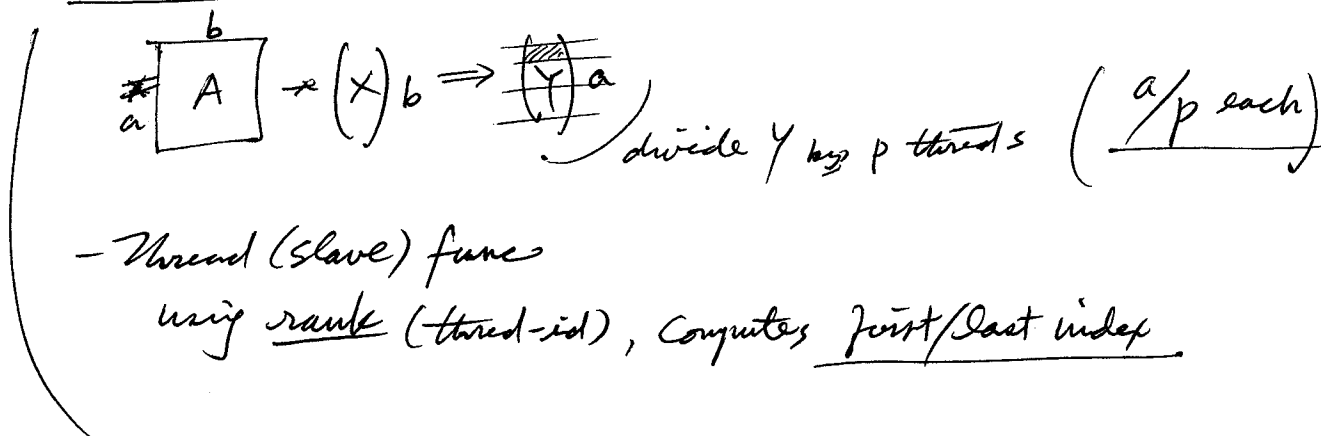 b
a A * (X) b ⇒ (Y) a
divide Y by p threds (a/p each)
- Thread (slave) func
using rank (thred-id), computes first/last index